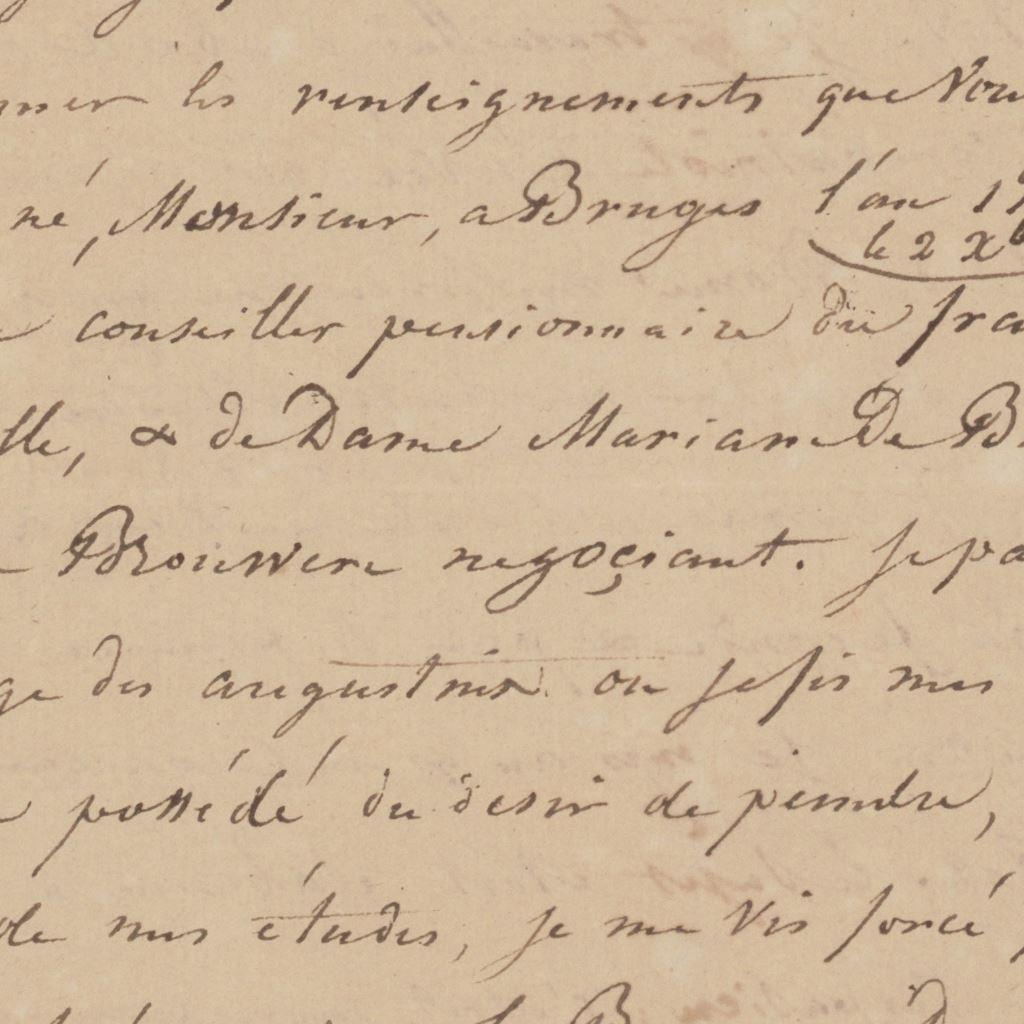 les renseignements que Vou
né, Monsieur, a Bruges l'an 1
le 2 X
conseiller pensionnaire du fra
lle, & de Dame Mariane De B
Brouwere negoçiant. Je pa
ge des augustins ou je fis mes
possédé du desir de peindre,
de mes études, je me Vis forcé